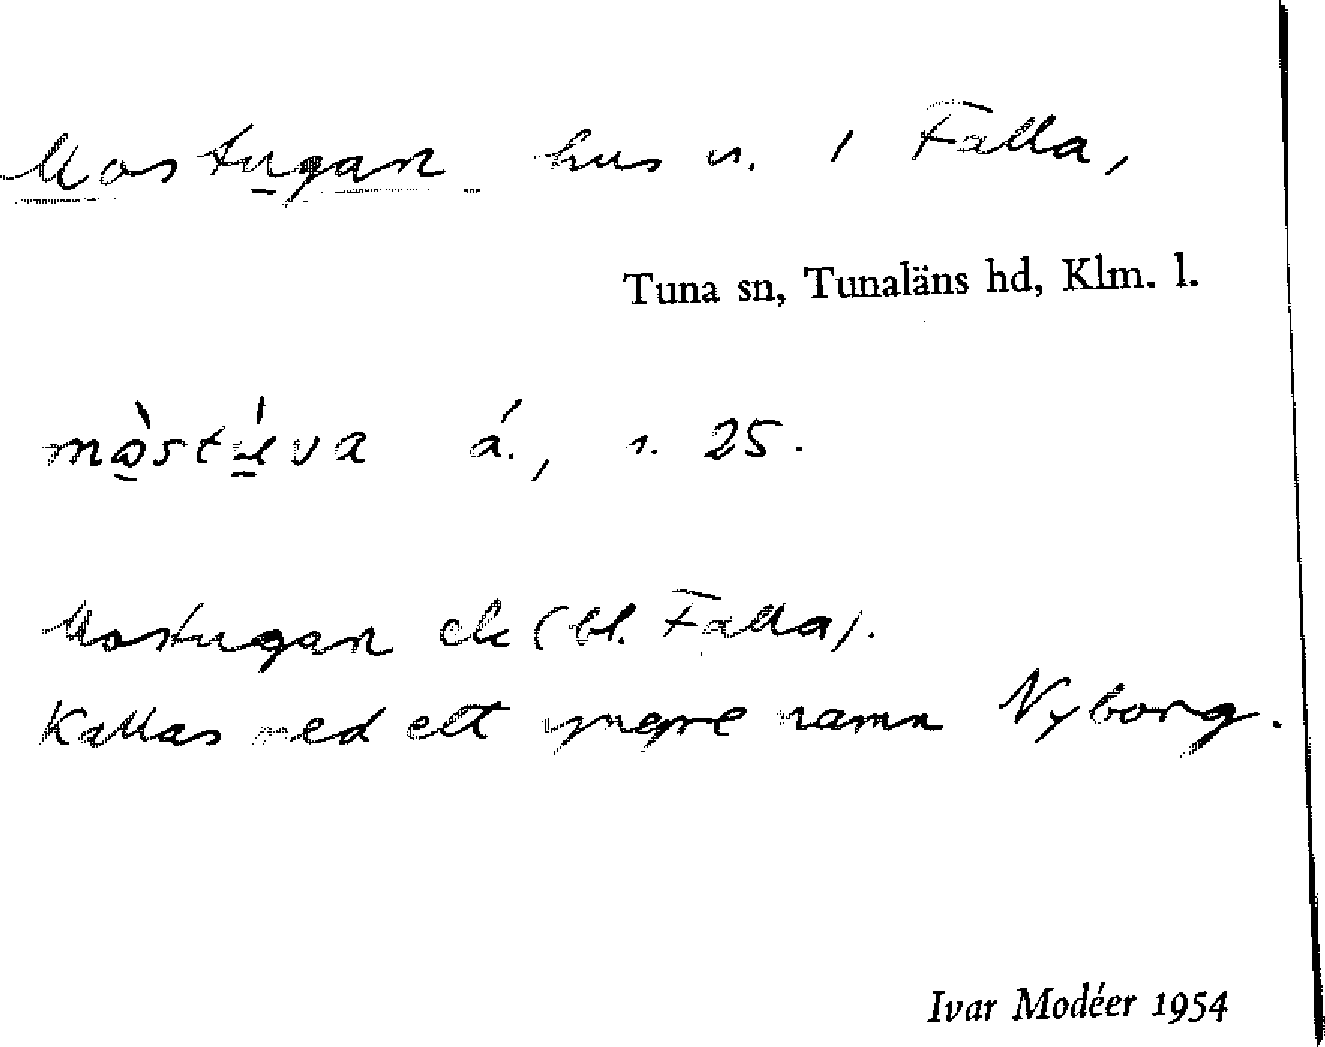 Mostugan hus n. i Falla,
Tuna sn, Tunaläns hd, Klm. l.
mò̲stú̲va á., s. 25.
Mostugan ek (bl. Falla).
Kallas med ett yngre namn Nyborg.
Ivar Modéer 1954